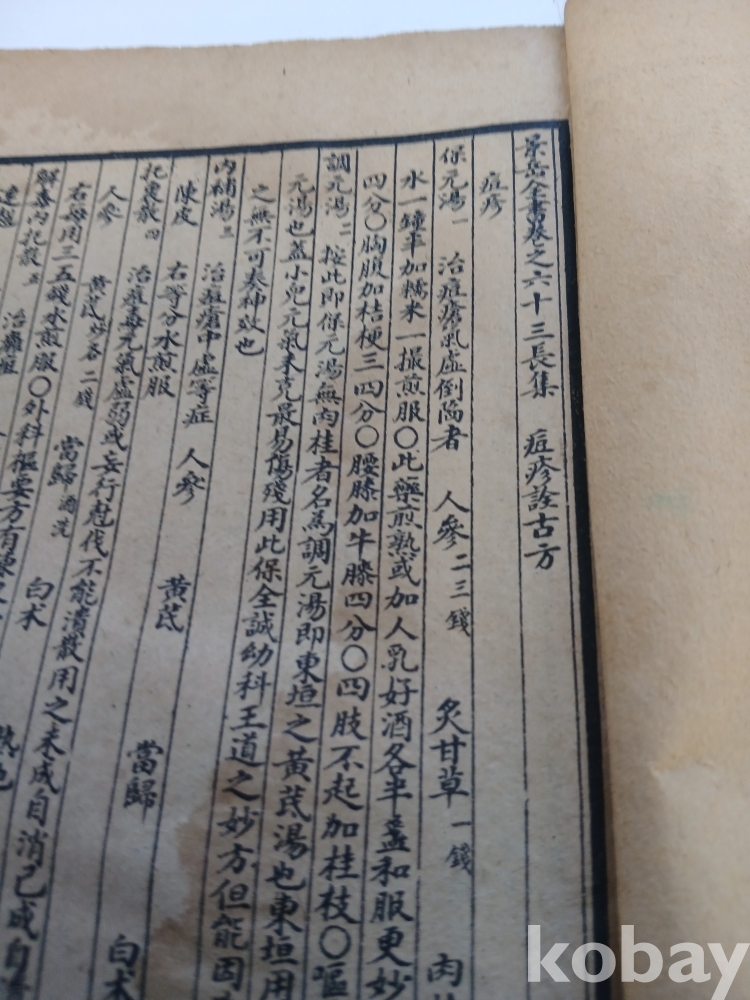 景岳全書卷之六十三長集　痘疹詮古方
痘疹
保元湯一　治痘瘡氣虛倒陷者　人參二三錢　炙甘草一錢　肉
水一鐘半加糯米一撮煎服〇此藥煎熟或加人乳好酒各半盞和服更妙
四分〇胸腹加桔梗三四分〇腰膝加牛膝四分〇四肢不起加桂枝〇嘔
調元湯二　按此即保元湯無肉桂者名為調元湯即東垣之黃芪湯也東垣用
元湯也蓋小兒元氣未充最易傷殘用此保全誠幼科王道之妙方但能因
之無不可奏神效也
內補湯三　治痘瘡中虛等症　人參　黃芪　當歸　白术
陳皮　右等分水煎服
托裏散四　治痘毒元氣虛弱或妄行尅伐不能潰散用之未成自消已成自
人參　黃芪炒各二錢　當歸酒洗　白术
右每用三五錢水煎服〇外科樞要方有
解毒內托散五　治癰疽
kobay